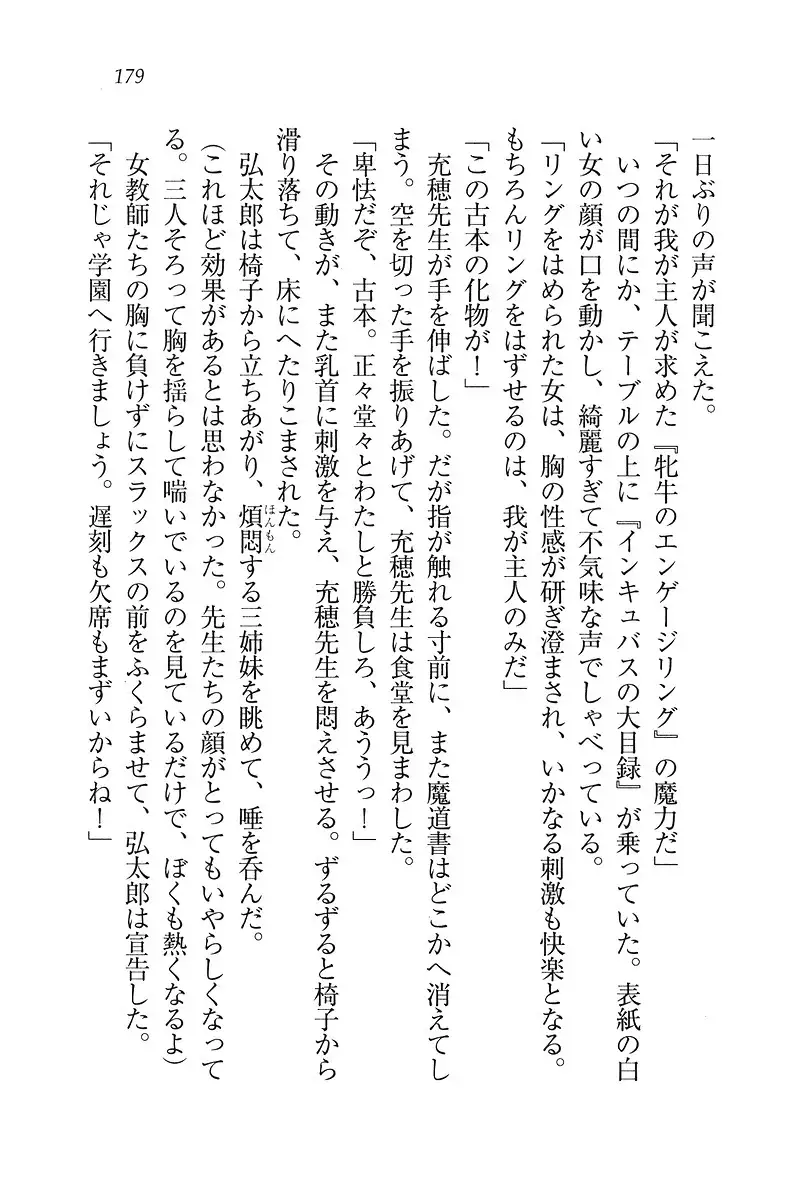 179
一日ぶりの声が聞こえた。
「それが我が主人が求めた『牝牛のエンゲージリング』の魔力だ」
いつの間にか、テーブルの上に『インキュバスの大目録』が乗っていた。表紙の白
い女の顔が口を動かし、綺麗すぎて不気味な声でしゃべっている。
「リングをはめられた女は、胸の性感が研ぎ澄まされ、いかなる刺激も快楽となる。
もちろんリングをはずせるのは、我が主人のみだ」
「この古本の化物が！」
充穂先生が手を伸ばした。だが指が触れる寸前に、また魔道書はどこかへ消えてし
まう。空を切った手を振りあげて、充穂先生は食堂を見まわした。
「卑怯だぞ、古本。正々堂々とわたしと勝負しろ、あううっ！」
その動きが、また乳首に刺激を与え、充穂先生を悶えさせる。ずるずると椅子から
滑り落ちて、床にへたりこまされた。
弘太郎は椅子から立ちあがり、煩悶する三姉妹を眺めて、唾を呑んだ。
ほんもん
（これほど効果があるとは思わなかった。先生たちの顔がとってもいやらしくなって
る。三人そろって胸を揺らして喘いでいるのを見ているだけで、ぼくも熱くなるよ）
女教師たちの胸に負けずにスラックスの前をふくらませて、弘太郎は宣告した。
「それじゃ学園へ行きましょう。遅刻も欠席もまずいからね！」